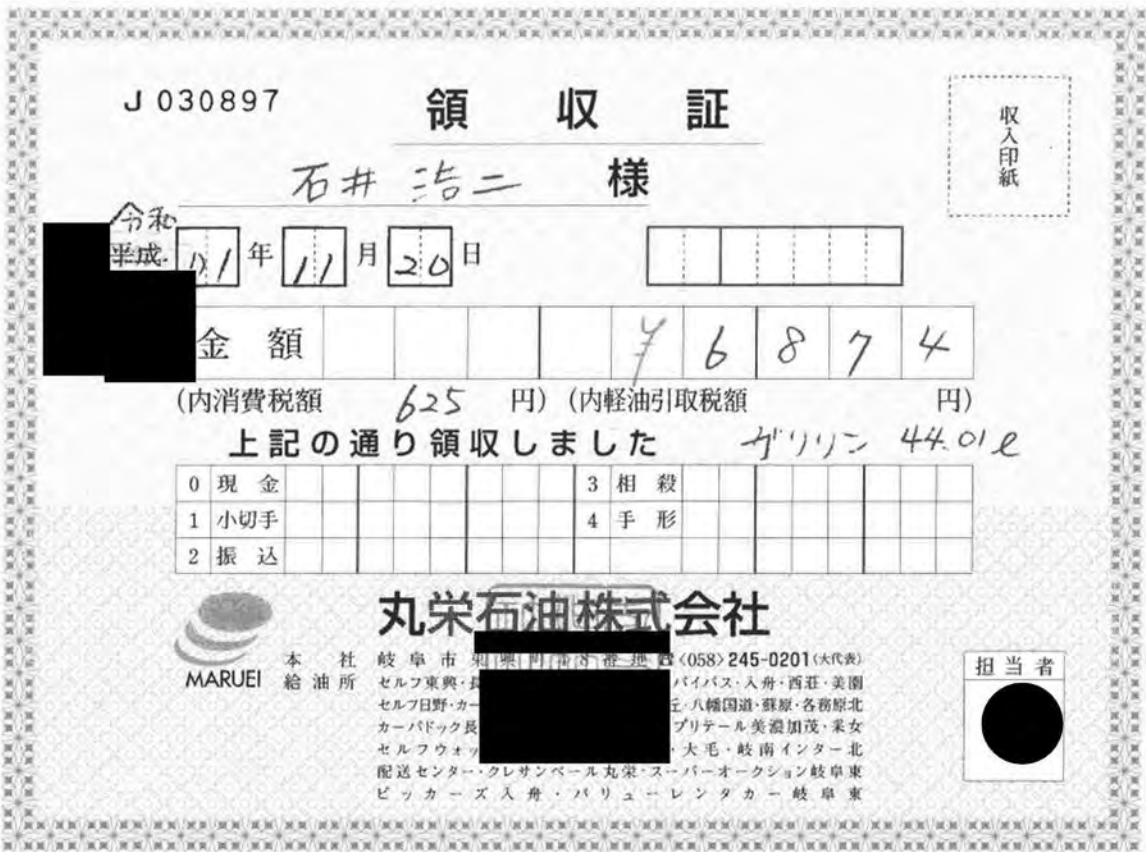 J 030897
領収証
収入印紙
石井 浩二 様
令和
平成 01年 11月 20日
金額 ¥6874
(内消費税額 625 円) (内軽油引取税額 円)
上記の通り領収しました ガソリン 44.01ℓ
0 現金 3 相殺
1 小切手 4 手形
2 振込
丸栄石油株式会社
MARUEI
本社 岐阜市 8番地 ☎(058)245-0201(大代表)
給油所 セルフ東興・長 バイパス・入舟・西荘・美園
セルフ日野・カー 丘・八幡国道・蘇原・各務原北
カーパドック長 プリテール美濃加茂・采女
セルフウォッ ・大毛・岐南インター北
配送センター・クレサンベール丸栄・スーパーオークション岐阜東
ビッカーズ入舟・バリューレンタカー岐阜東
担当者